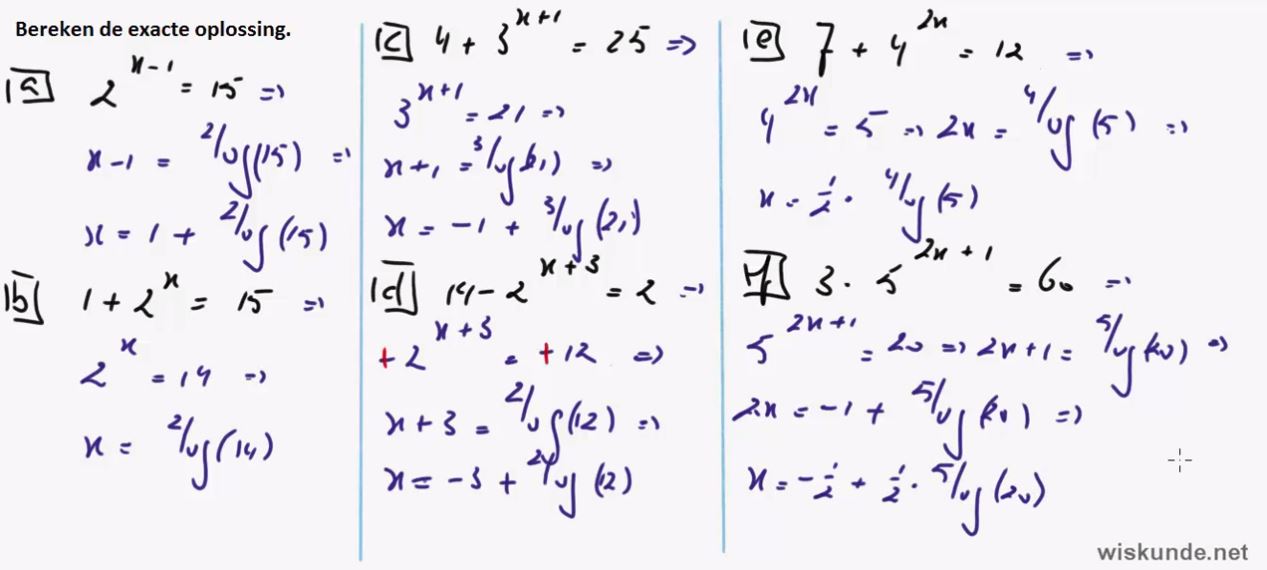 Bereken de exacte oplossing.
1a] 2^(x-1) = 15 =>
x-1 = ²log(15) =>
x = 1 + ²log(15)
1b] 1 + 2^x = 15 =>
2^x = 14 =>
x = ²log(14)
1c] 4 + 3^(x+1) = 25 =>
3^(x+1) = 21 =>
x+1 = ³log(21) =>
x = -1 + ³log(21)
1d] 14 - 2^(x+3) = 2 =>
+2^(x+3) = +12 =>
x+3 = ²log(12) =>
x = -3 + ²log(12)
1e] 7 + 4^(2x) = 12 =>
4^(2x) = 5 => 2x = ⁴log(5) =>
x = ½ · ⁴log(5)
1f] 3 · 5^(2x+1) = 60 =>
5^(2x+1) = 20 => 2x+1 = ⁵log(20) =>
2x = -1 + ⁵log(20) =>
x = -½ + ½ · ⁵log(20)
wiskunde.net